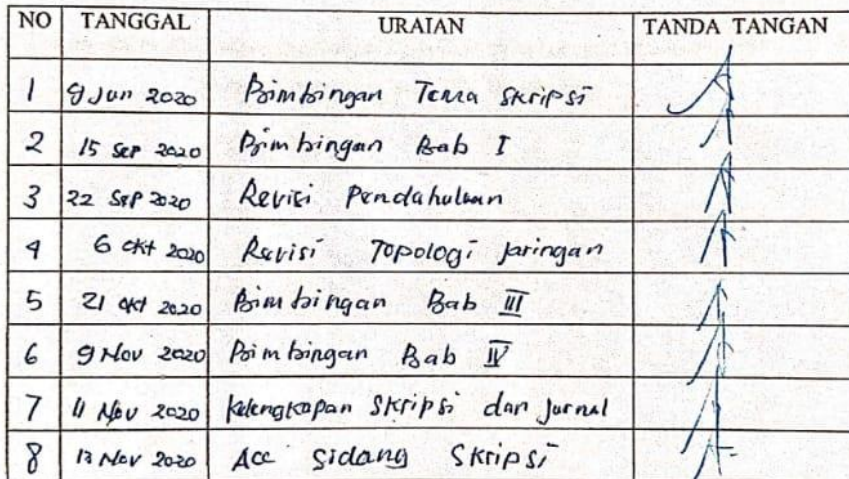 NO TANGGAL URAIAN TANDA TANGAN
1 9 Jun 2020 Bimbingan Tema Skripsi
2 15 Sep 2020 Bimbingan Bab I
3 22 Sep 2020 Revisi Pendahuluan
4 6 Okt 2020 Revisi Topologi Jaringan
5 21 Okt 2020 Bimbingan Bab III
6 9 Nov 2020 Bimbingan Bab IV
7 11 Nov 2020 Kelengkapan Skripsi dan Jurnal
8 13 Nov 2020 Acc Sidang Skripsi